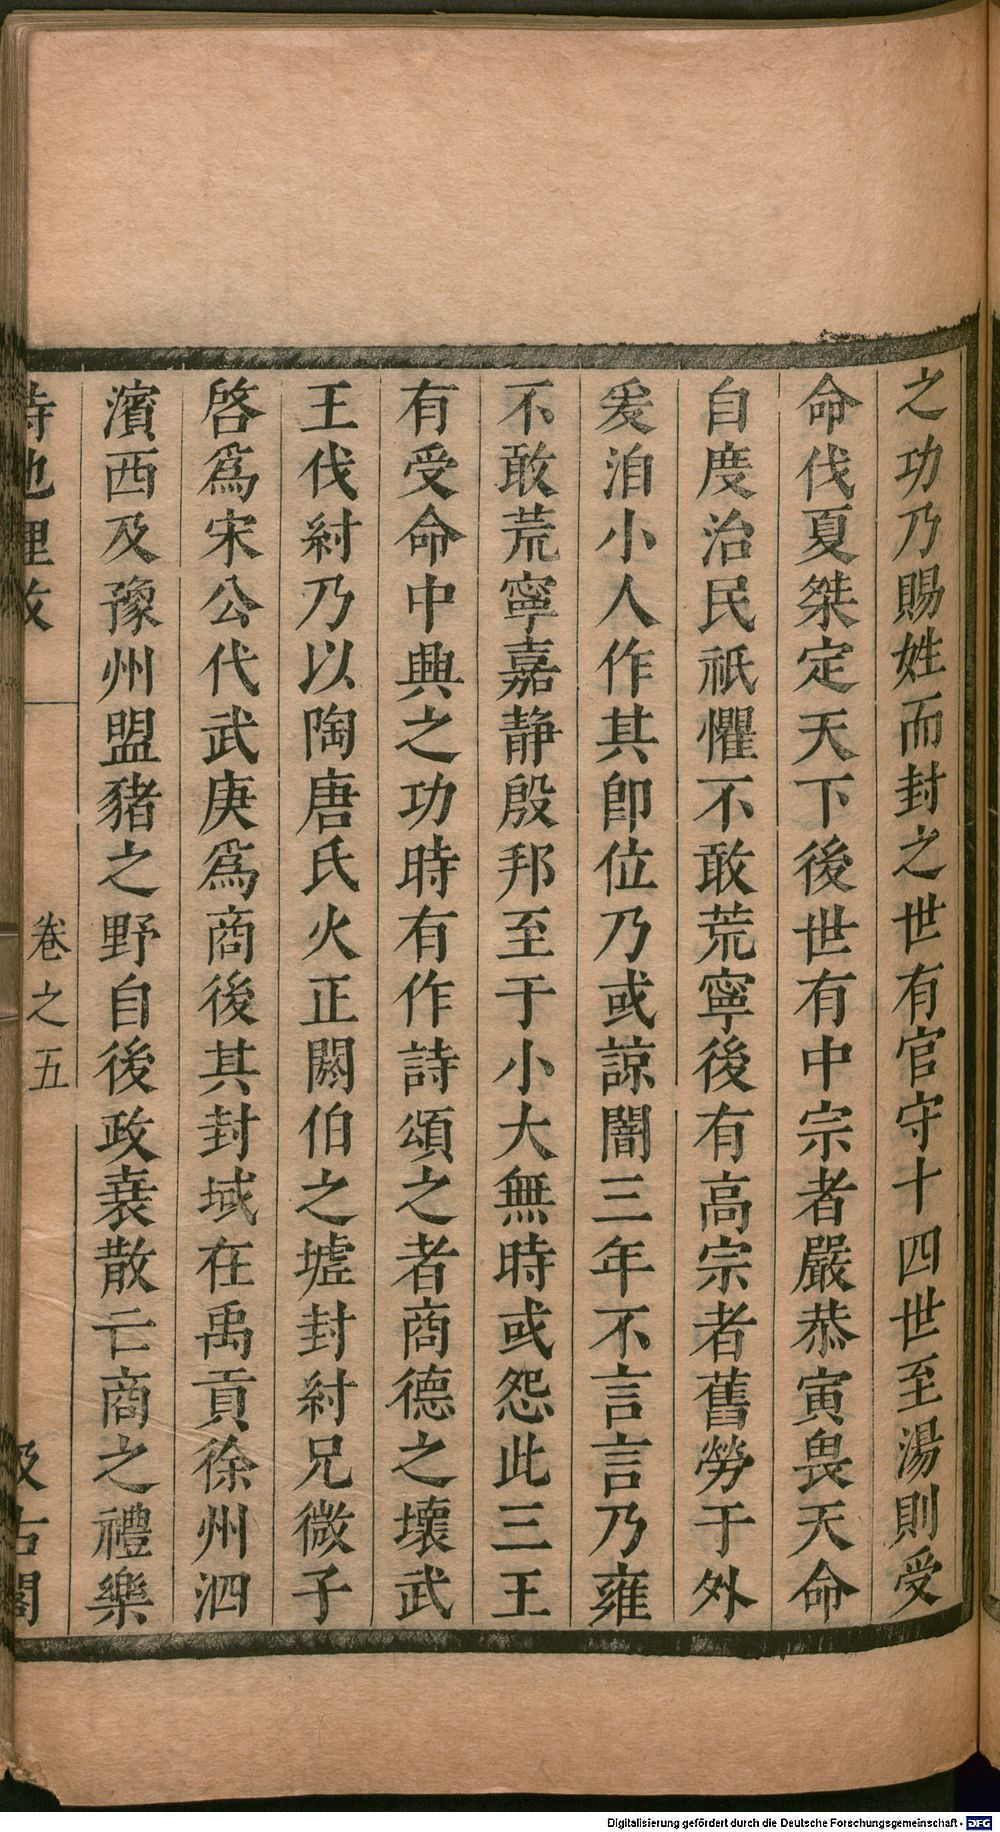 之功乃賜姓而封之世有官守十四世至湯則受
命伐夏桀定天下後世有中宗者嚴恭寅畏天命
自度治民祇懼不敢荒寧後有高宗者舊勞于外
爰洎小人作其卽位乃或諒闇三年不言言乃雍
不敢荒寧嘉靜殷邦至于小大無時或怨此三王
有受命中興之功時有作詩頌之者商德之壞武
王伐紂乃以陶唐氏火正閼伯之墟封紂兄微子
啓爲宋公代武庚爲商後其封域在禹貢徐州泗
濱西及豫州盟豬之野自後政衰散亡商之禮樂
詩地理攷 卷之五 汲古閣
Digitalisierung gefördert durch die Deutsche Forschungsgemeinschaft - DFG